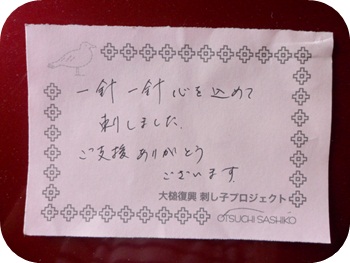 一針一針心を込めて
刺しました.
ご支援ありがとう
ございます
大槌復興刺し子プロジェクト
OTSUCHI SASHIKO